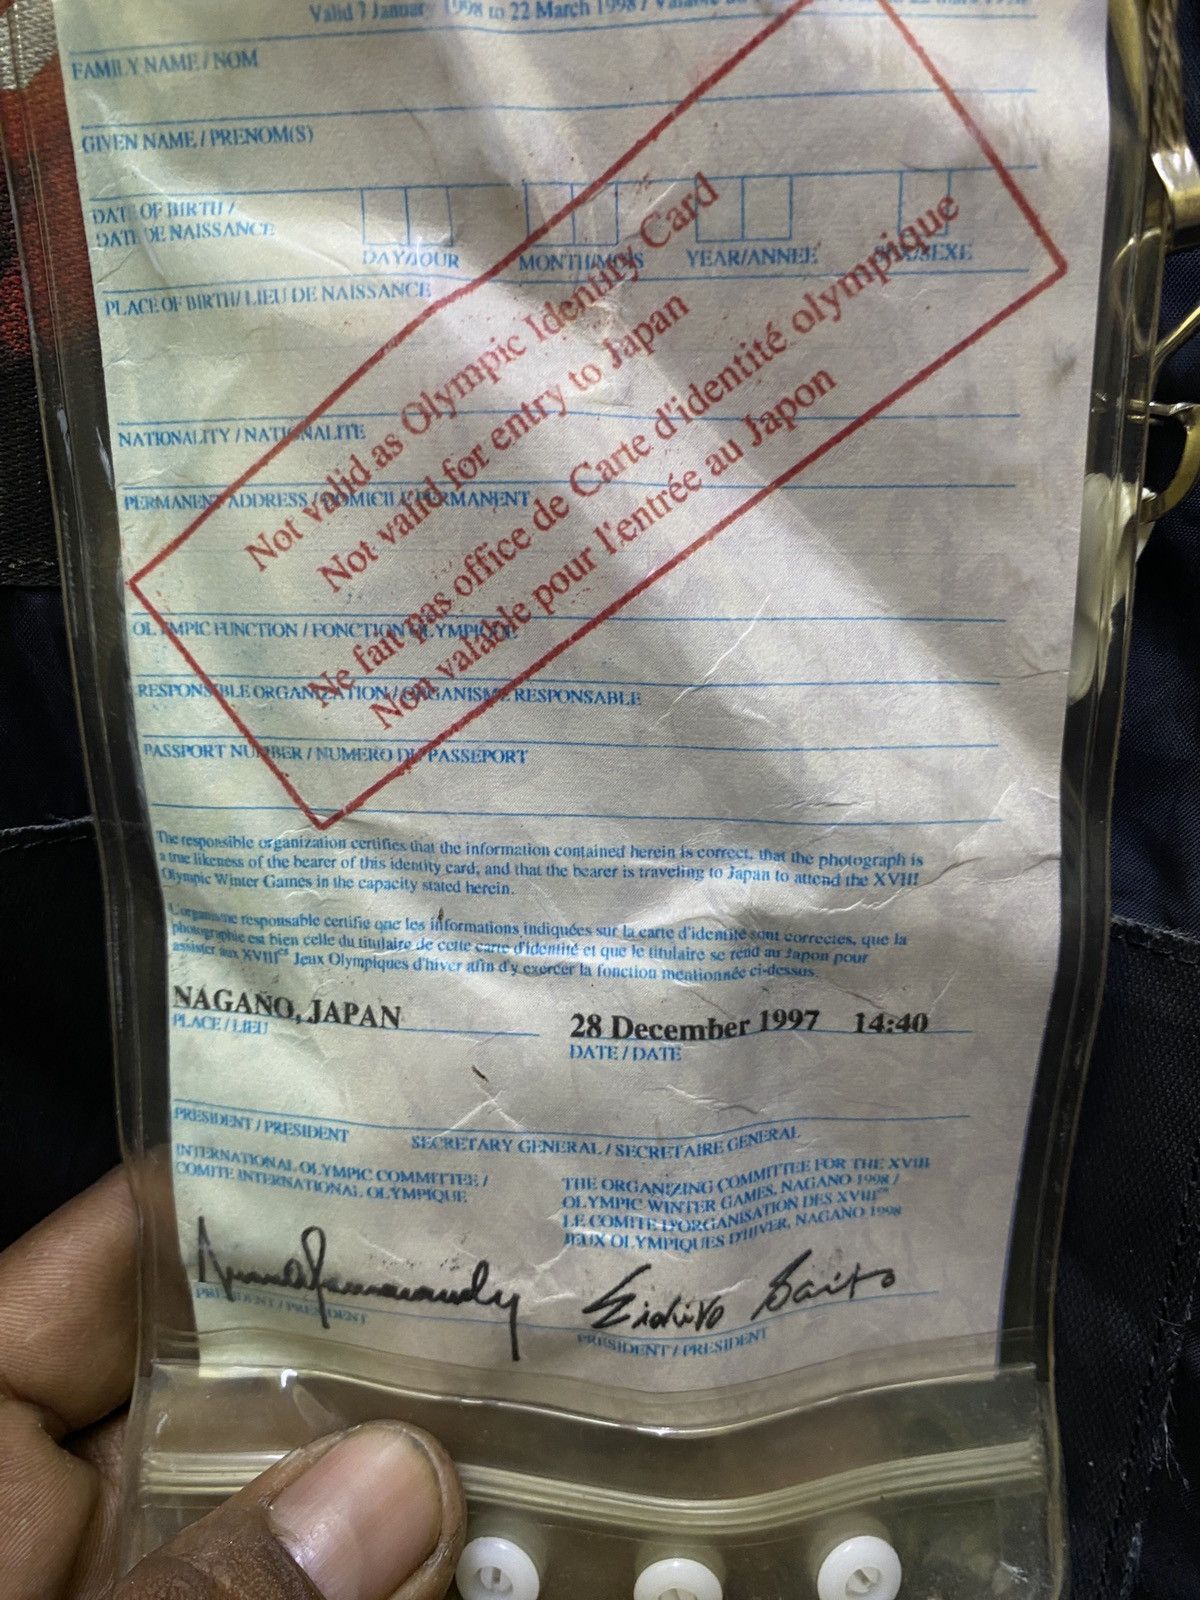 Valid 7 January 1998 to 22 March 1998 / Valable du
FAMILY NAME / NOM
GIVEN NAME / PRENOM(S)
DATE OF BIRTH /
DATE DE NAISSANCE
DAY/JOUR
MONTH/MOIS
YEAR/ANNEE
SEX/SEXE
PLACE OF BIRTH / LIEU DE NAISSANCE
NATIONALITY / NATIONALITE
PERMANENT ADDRESS / DOMICILE PERMANENT
Not valid as Olympic Identity Card
Not valid for entry to Japan
Ne fait pas office de Carte d'identité olympique
Non valable pour l'entrée au Japon
OLYMPIC FUNCTION / FONCTION OLYMPIQUE
RESPONSIBLE ORGANIZATION / ORGANISME RESPONSABLE
PASSPORT NUMBER / NUMERO DE PASSEPORT
The responsible organization certifies that the information contained herein is correct, that the photograph is
a true likeness of the bearer of this identity card, and that the bearer is traveling to Japan to attend the XVIII
Olympic Winter Games in the capacity stated herein.
L'organisme responsable certifie que les informations indiquées sur la carte d'identité sont correctes, que la
photographie est bien celle du titulaire de cette carte d'identité et que le titulaire se rend au Japon pour
assister aux XVIIIes Jeux Olympiques d'hiver afin d'y exercer la fonction mentionnée ci-dessus.
NAGANO, JAPAN
PLACE / LIEU
28 December 1997 14:40
DATE / DATE
PRESIDENT / PRESIDENT
SECRETARY GENERAL / SECRETAIRE GENERAL
INTERNATIONAL OLYMPIC COMMITTEE /
COMITE INTERNATIONAL OLYMPIQUE
THE ORGANIZING COMMITTEE FOR THE XVIII
OLYMPIC WINTER GAMES, NAGANO 1998 /
LE COMITE D'ORGANISATION DES XVIIIes
JEUX OLYMPIQUES D'HIVER, NAGANO 1998
Eishiro Saito
PRESIDENT / PRESIDENT
PRESIDENT / PRESIDENT